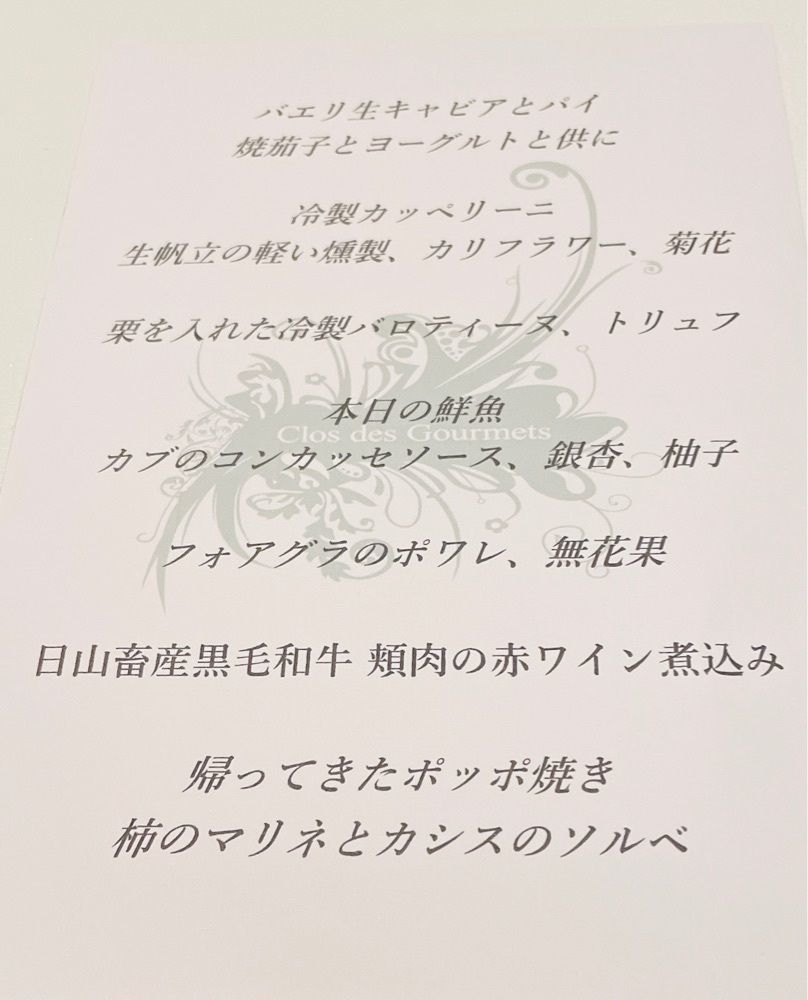 バエリ生キャビアとパイ
焼茄子とヨーグルトと供に
冷製カッペリーニ
生帆立の軽い燻製、カリフラワー、菊花
栗を入れた冷製バロティーヌ、トリュフ
本日の鮮魚
Clos des Gourmets
カブのコンカッセソース、銀杏、柚子
フォアグラのポワレ、無花果
日山畜産黒毛和牛 頬肉の赤ワイン煮込み
帰ってきたポッポ焼き
柿のマリネとカシスのソルベ